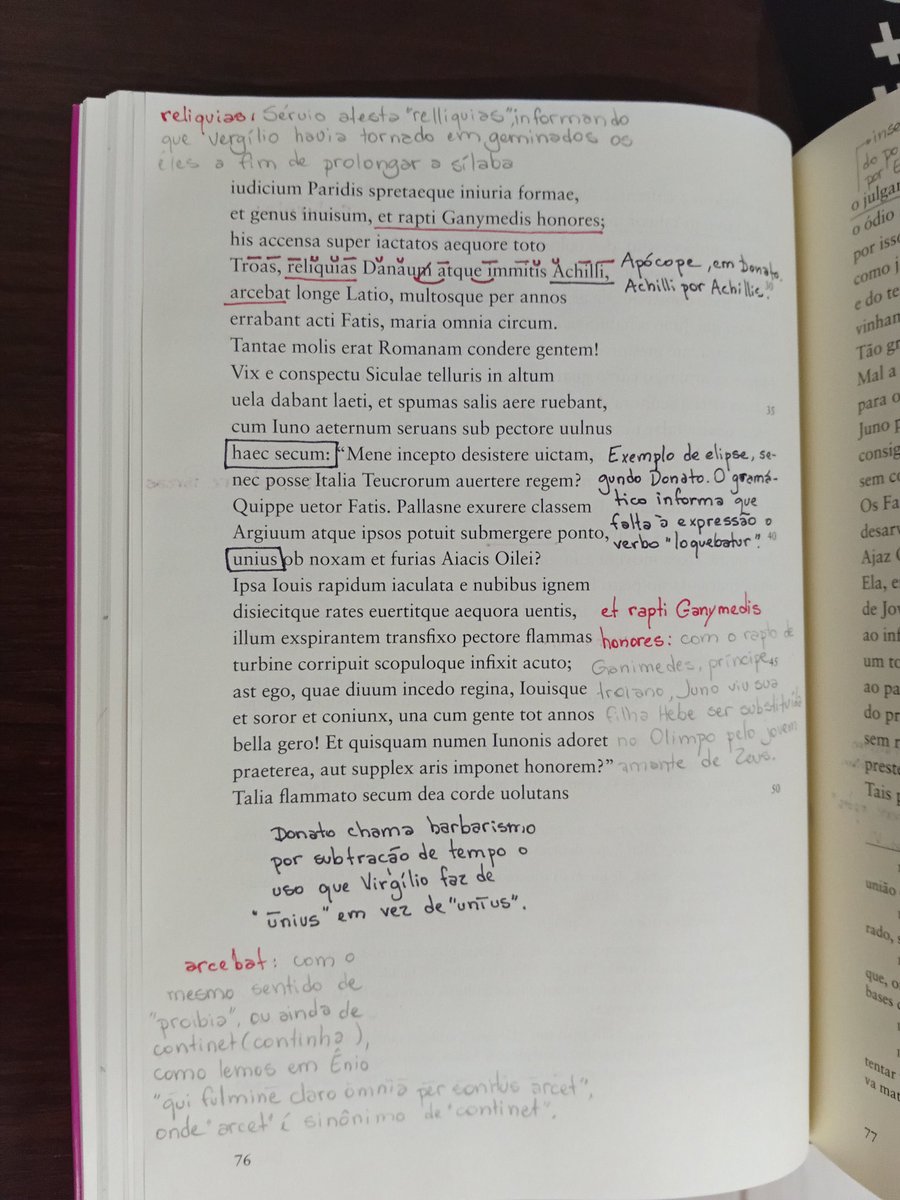 reliquias: Sérvio atesta "relliquias", informando
que Vergílio havia tornado em geminados os
éles a fim de prolongar a sílaba
iudicium Paridis spretaeque iniuria formae,
et genus inuisum, et rapti Ganymedis honores;
his accensa super iactatos aequore toto
Troas, reliquias Danaum atque immitis Achilli,
Apócope, em Donato.
Achilli por Achillis.
30
arcebat longe Latio, multosque per annos
errabant acti Fatis, maria omnia circum.
Tantae molis erat Romanam condere gentem!
Vix e conspectu Siculae telluris in altum
uela dabant laeti, et spumas salis aere ruebant,
35
cum Iuno aeternum seruans sub pectore uulnus
haec secum: "Mene incepto desistere uictam,
nec posse Italia Teucrorum auertere regem?
Quippe uetor Fatis. Pallasne exurere classem
Argiuum atque ipsos potuit submergere ponto,
40
unius ob noxam et furias Aiacis Oilei?
Exemplo de elipse, se-
gundo Donato. O gramá-
tico informa que
falta à expressão o
verbo "loquebatur".
Ipsa Iouis rapidum iaculata e nubibus ignem
disiecitque rates euertitque aequora uentis,
illum exspirantem transfixo pectore flammas
turbine corripuit scopuloque infixit acuto;
45
ast ego, quae diuum incedo regina, Iouisque
et soror et coniunx, una cum gente tot annos
bella gero! Et quisquam numen Iunonis adoret
praeterea, aut supplex aris imponet honorem?"
Talia flammato secum dea corde uolutans
50
et rapti Ganymedis
honores: com o rapto de
Ganimedes, príncipe
troiano, Juno viu sua
filha Hebe ser substituída
no Olimpo pelo jovem
amante de Zeus.
Donato chama barbarismo
por subtração de tempo o
uso que Virgílio faz de
"ūnius" em vez de "unīus".
arcebat: com o
mesmo sentido de
"proibia", ou ainda de
continet (continha),
como lemos em Ênio
"qui fulmine claro omnia per sonitus arcet",
onde "arcet" é sinônimo de "continet".
76
o julgar
o ódio
por isso
como j
e do te
vinhan
Tão gr
Mal a
para o
Juno p
consig
sem c
Os Fa
desarv
Ajaz
Ela, e
de Jov
ao inf
um to
ao pa
do pr
sem r
preste
Tais p
união
rado, s
que, o
bases
tentar
va mat
77